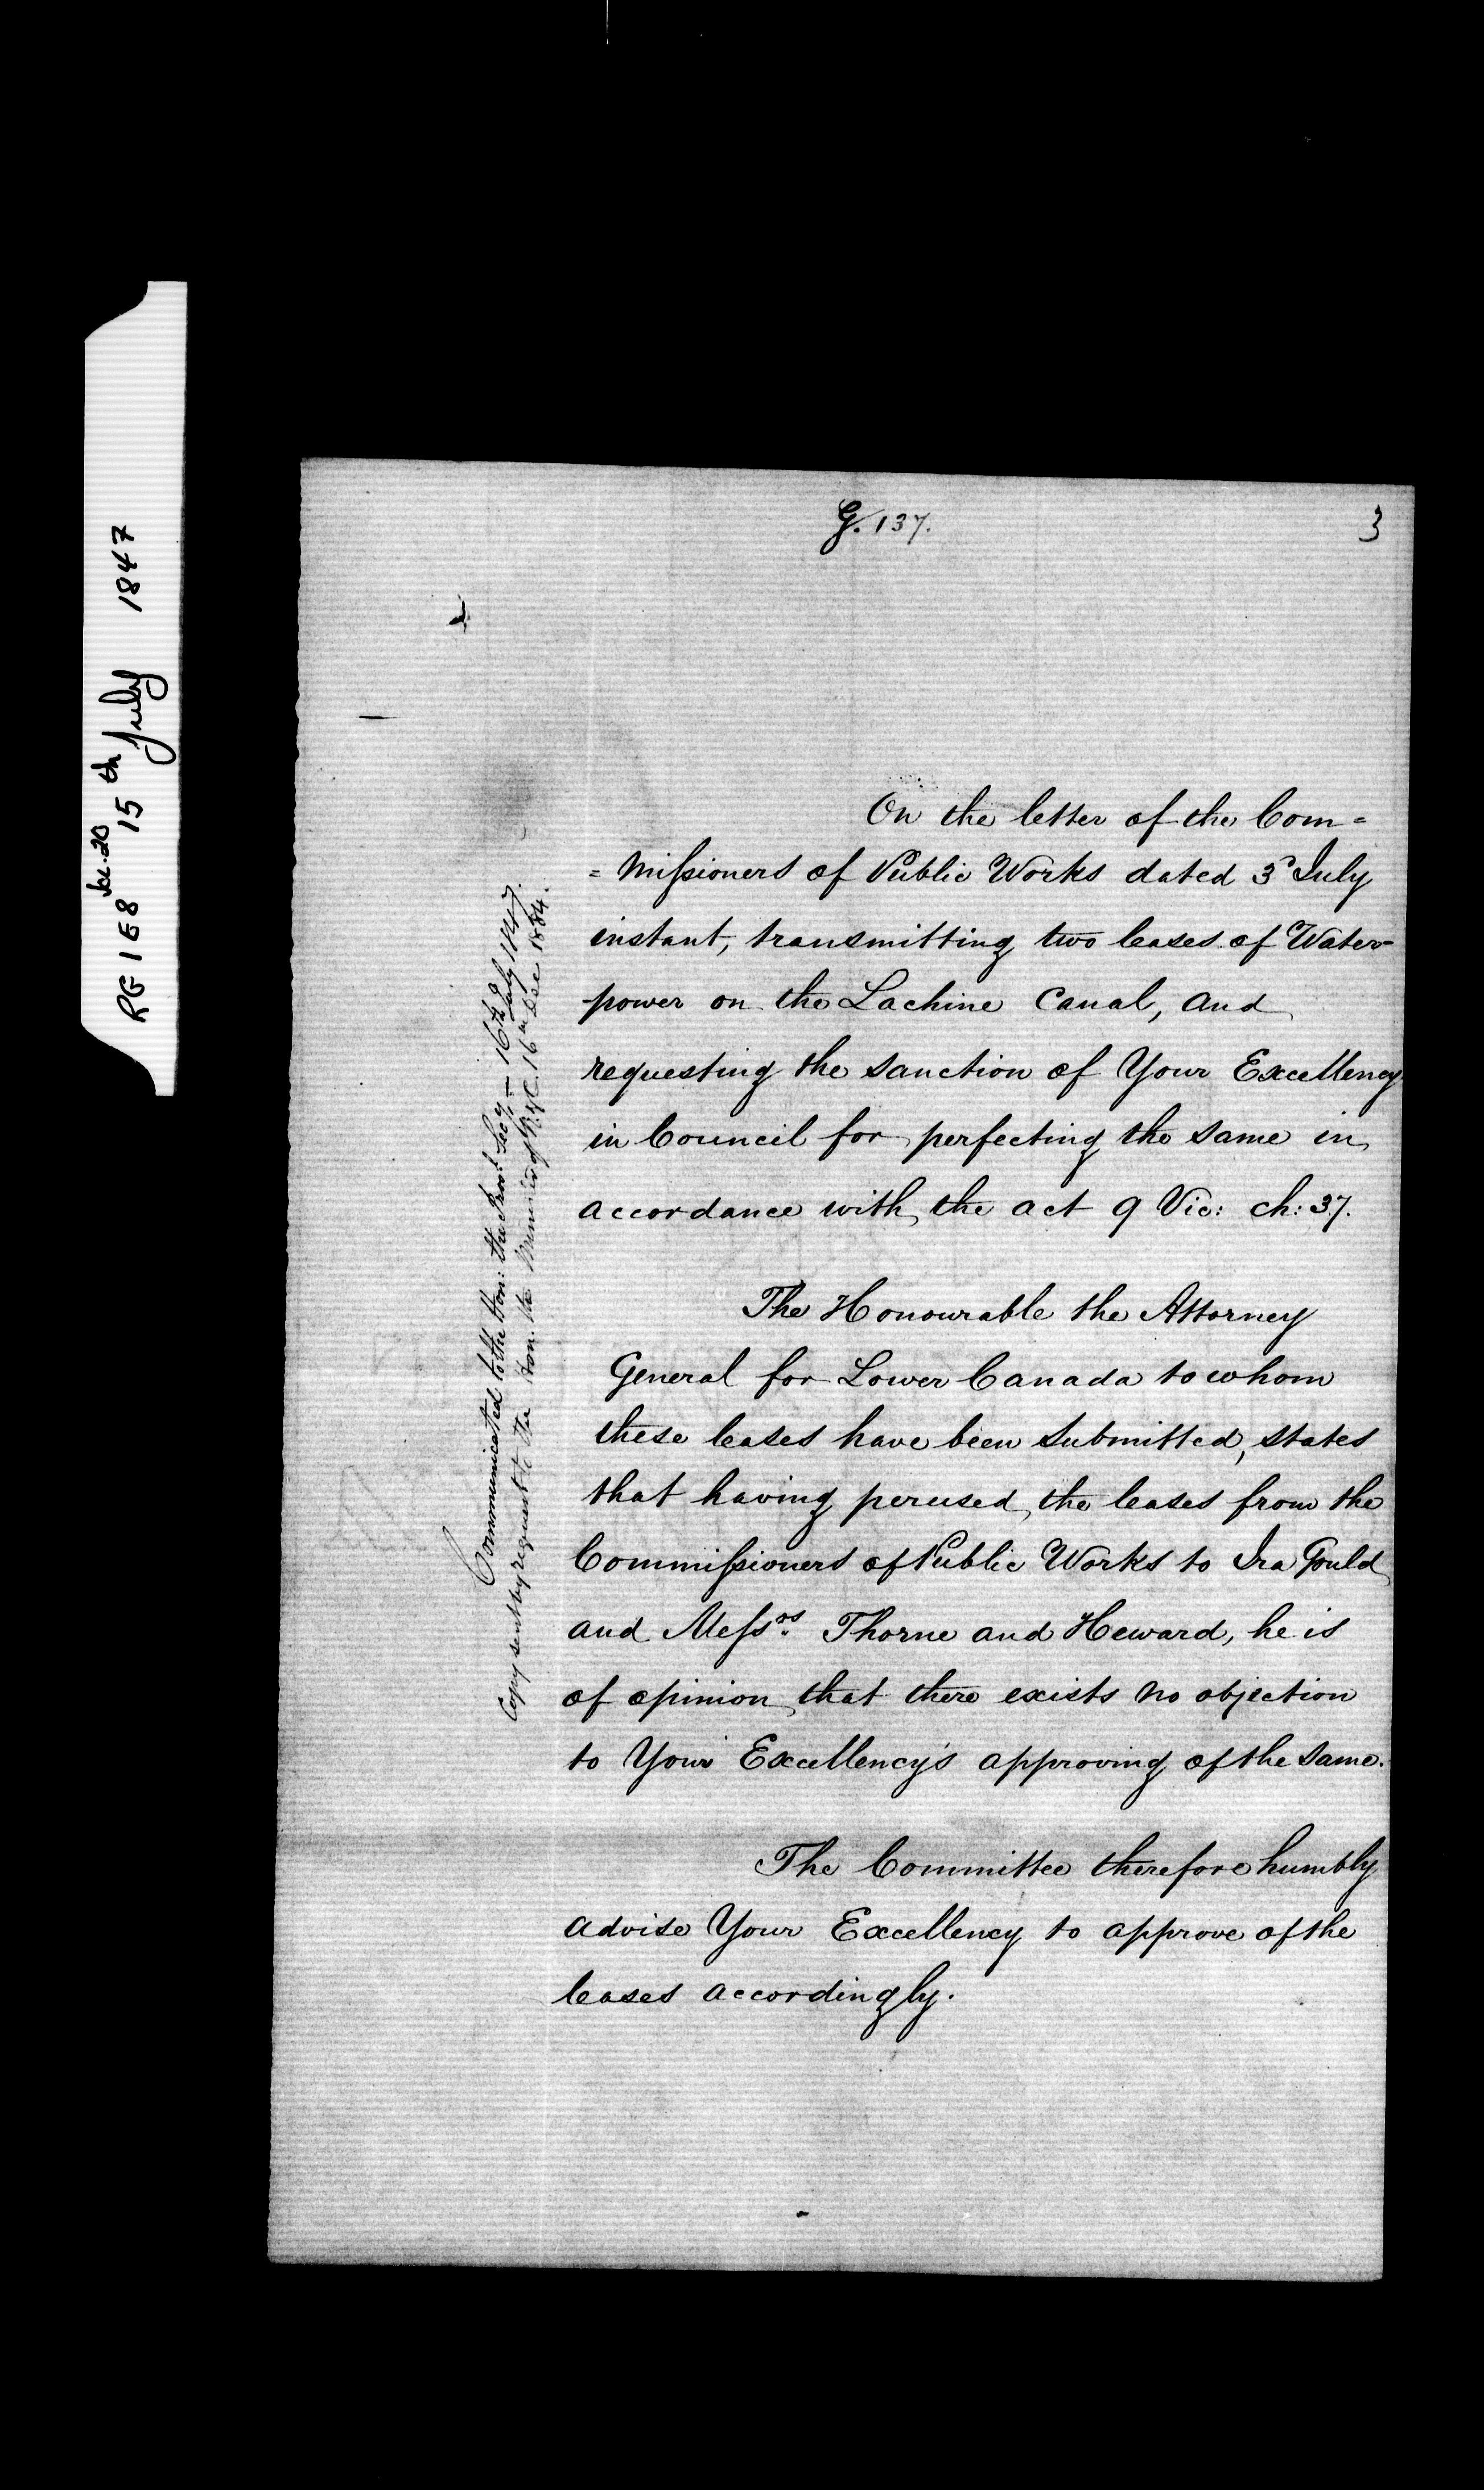 RG 1 E8 Vol. 20 15th July 1847
G. 137.
3
On the letter of the Com=
=missioners of Public Works dated 3d July
instant, transmitting two leases of Water-
power on the Lachine Canal, and
requesting the sanction of Your Excellency
in Council for perfecting the same in
accordance with the act 9 Vic: ch: 37.
The Honourable the Attorney
General for Lower Canada to whom
these leases have been submitted, states
that having perused the leases from the
Commissioners of Public Works to Ira Gould
and Messrs. Thorne and Heward, he is
of opinion that there exists no objection
to Your Excellency's approving of the same.
The Committee therefore humbly
advise Your Excellency to approve of the
leases accordingly.
Communicated to the Hon: the Provl. Secy. – 16th July 1847.
Copy sent by request to the Hon. the Minister of Rys & C. 16th Dec 1884.